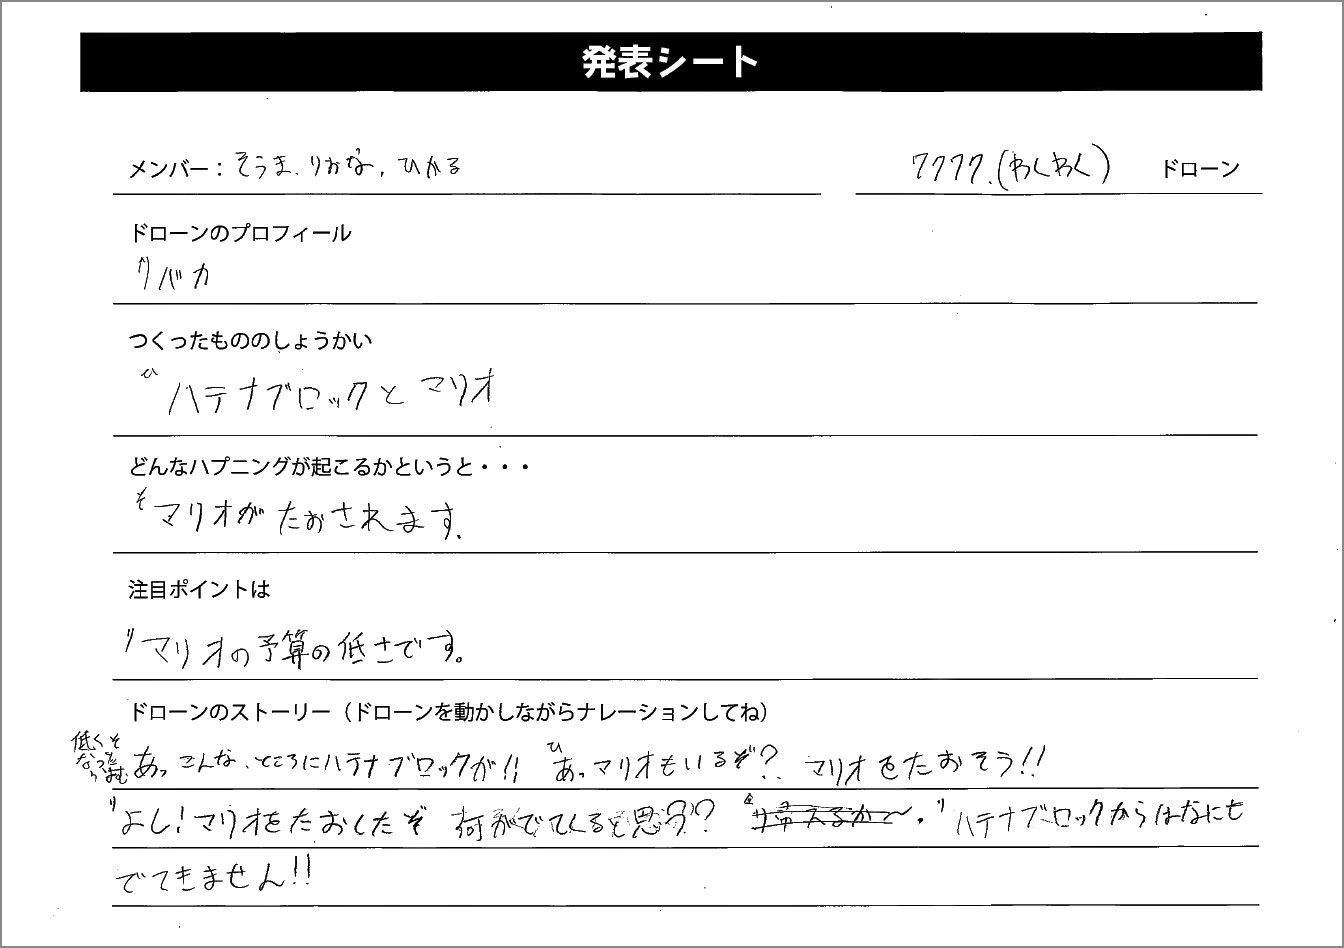 発表シート
メンバー：そうま、りおな、ひかる
7777.(わくわく) ドローン
ドローンのプロフィール
バカ
つくったもののしょうかい
ひ ハテナブロックと マリオ
どんなハプニングが起こるかというと・・・
そ マリオが たおされます.
注目ポイントは
り マリオの予算の低さです。
ドローンのストーリー（ドローンを動かしながらナレーションしてね）
そ あっ こんな、ところにハテナブロックが!! ひ あっマリオもいるぞ? マリオをたおそう!!
り よし!マリオをたおしたぞ 何がでてくると思う? り ハテナブロックからはなにも
でてきません!!